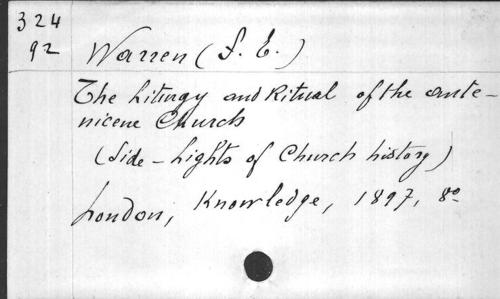 324
92
Warren (F. E.)
The Liturgy and Ritual of the ante-
nicene Church
(Side-Lights of Church history)
London, Knowledge, 1897, 8º